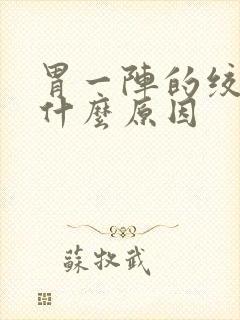 胃一陣的绞
什麼原因
蘇牧武